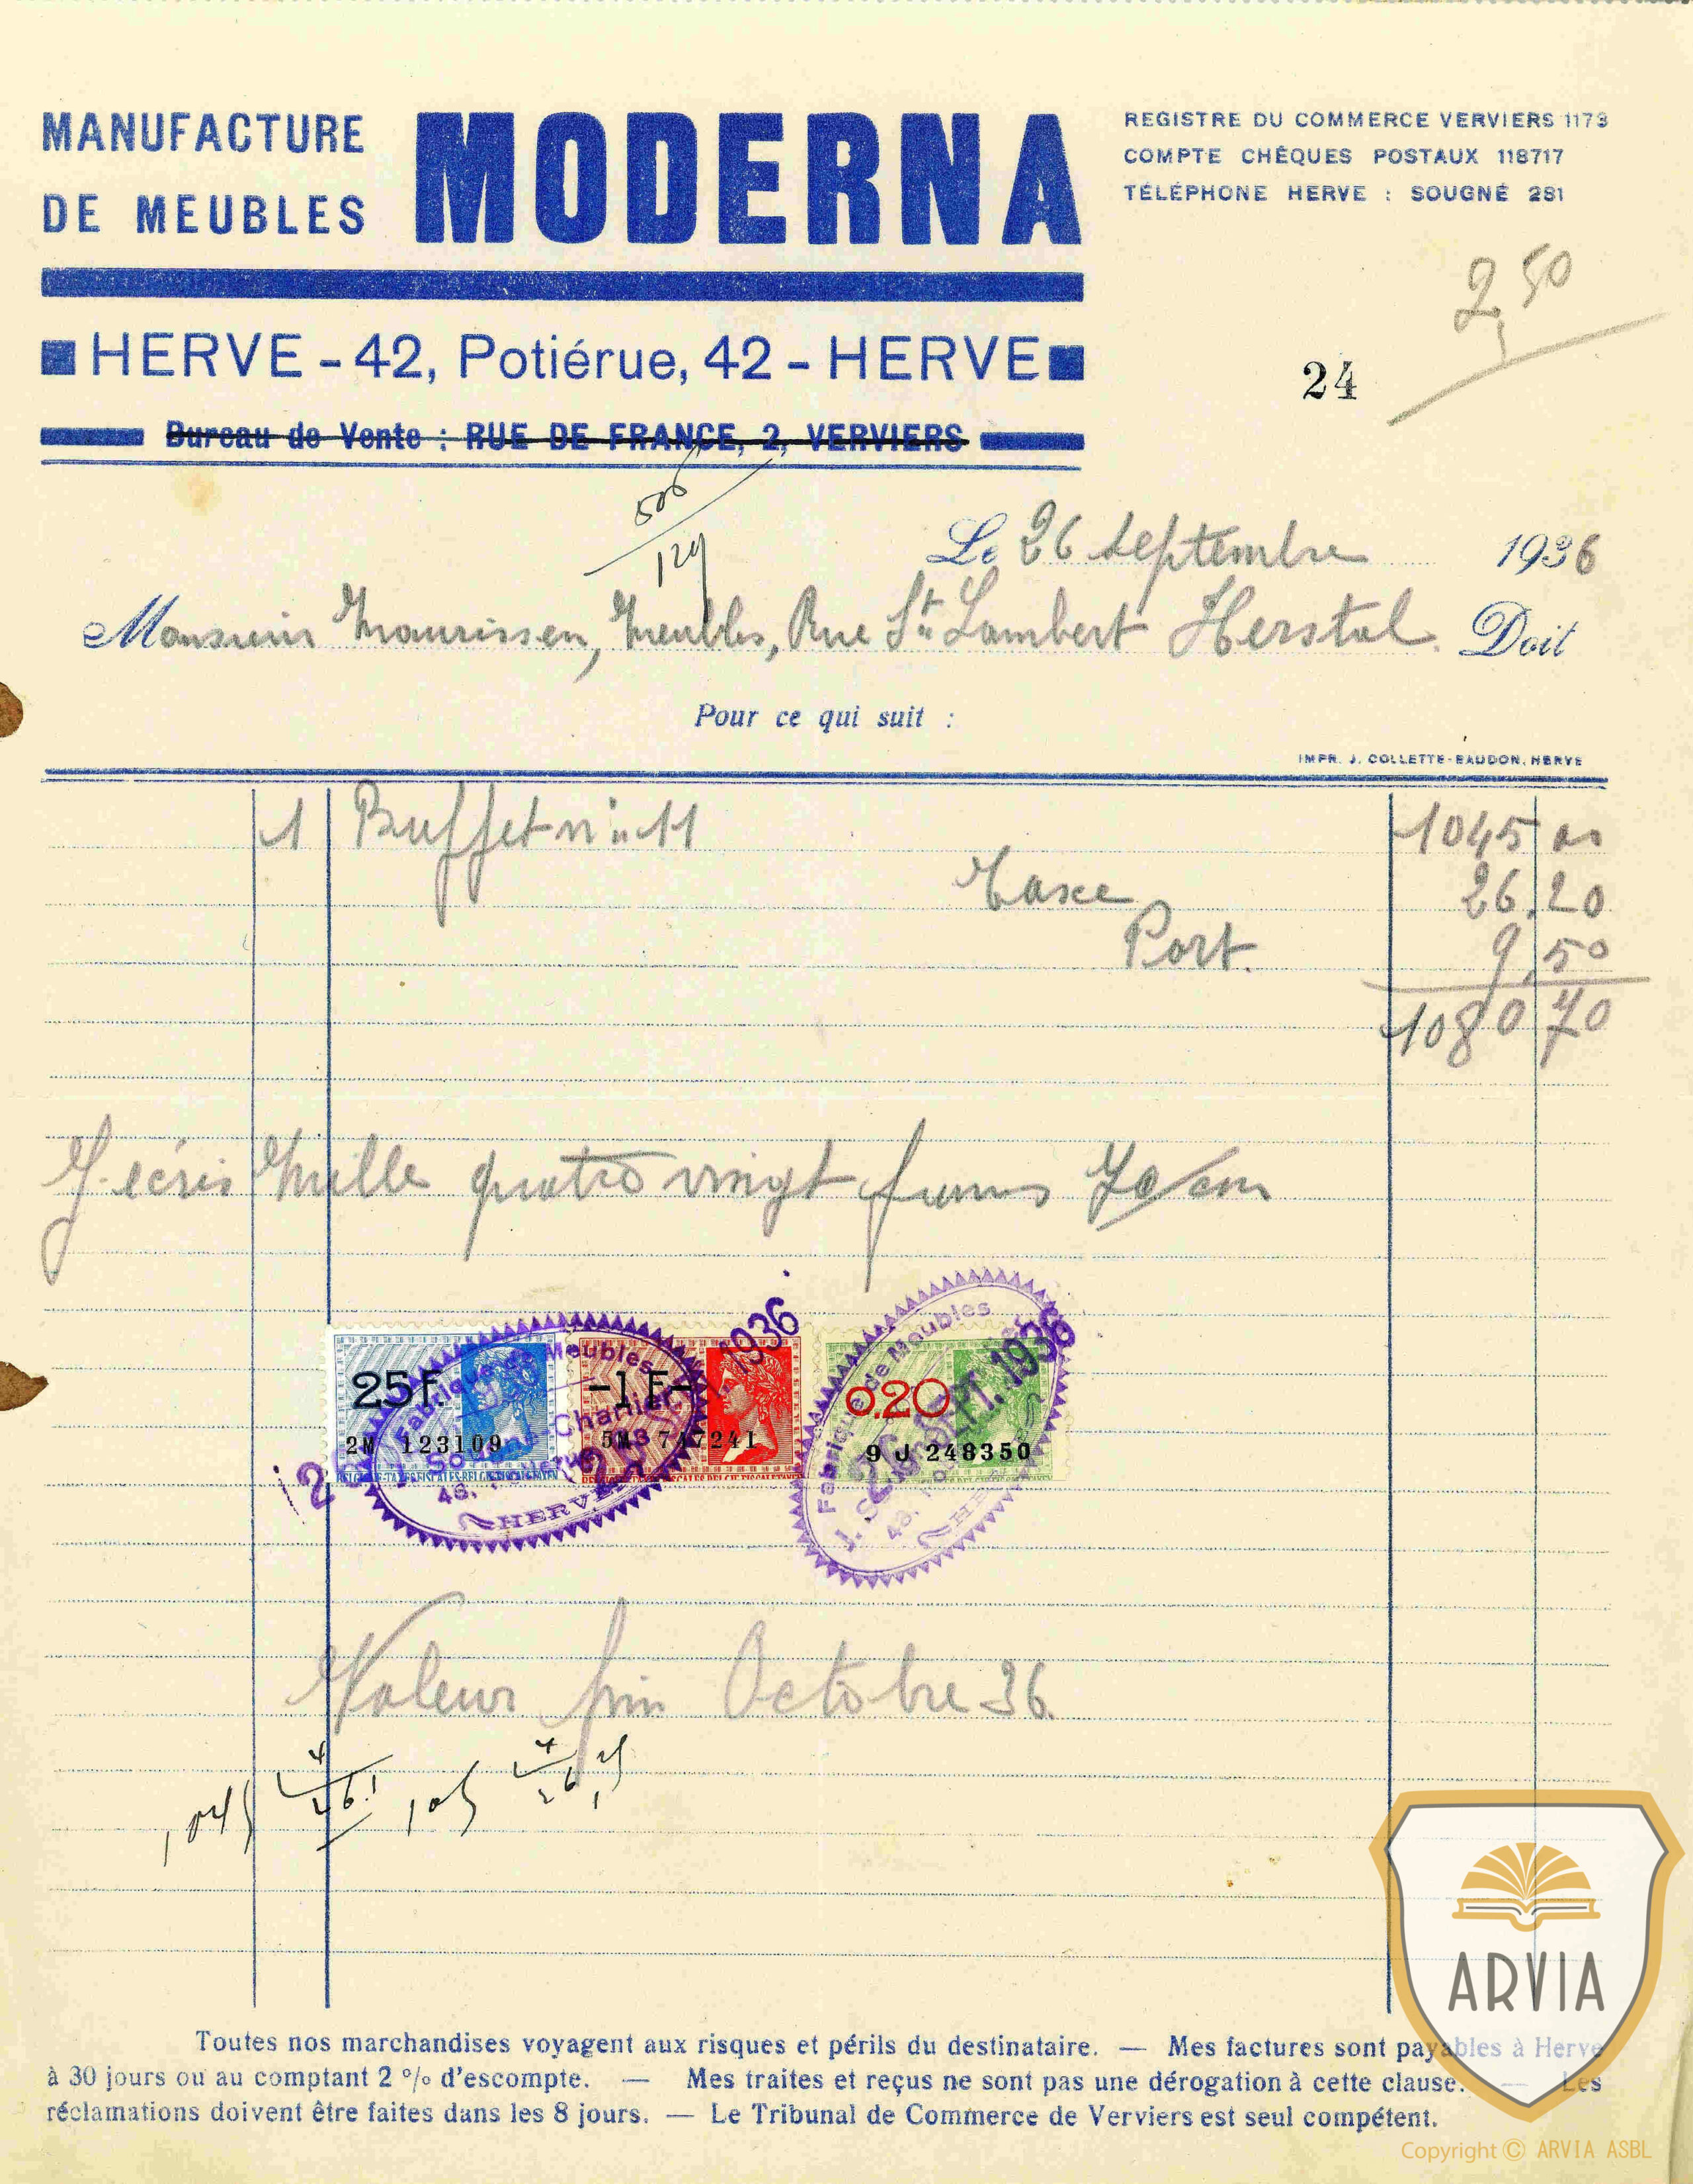 MANUFACTURE
DE MEUBLES
MODERNA
REGISTRE DU COMMERCE VERVIERS 1173
COMPTE CHÈQUES POSTAUX 118717
TÉLÉPHONE HERVE : SOUGNÉ 281
2,50
HERVE - 42, Potiérue, 42 - HERVE
24
Bureau de Vente : RUE DE FRANCE, 2, VERVIERS
506
129
Le 26 septembre 1936
Monsieur Maurissen, Meubles, Rue St Lambert Herstal. Doit
Pour ce qui suit :
IMPR. J. COLLETTE-BAUDON, HERVE
1 Buffet n° 11 1045
Taxe 26,20
Port. 9,50
1080 70
J. écris Mille quatre vingt francs 70/cm
25 F.
2M 123109
-1 F-
5M 747241
0.20
9 J 248350
Fabrique de Meubles
Charlier
48,
HERVE
1936
Fabrique de Meubles
26 SEPT. 1936
48,
Valeur fin Octobre 36.
1045
4
26.1
4
ARVIA
Toutes nos marchandises voyagent aux risques et périls du destinataire. — Mes factures sont payables à Herve
à 30 jours ou au comptant 2 % d'escompte. — Mes traites et reçus ne sont pas une dérogation à cette clause. — Les
réclamations doivent être faites dans les 8 jours. — Le Tribunal de Commerce de Verviers est seul compétent.
Copyright © ARVIA ASBL